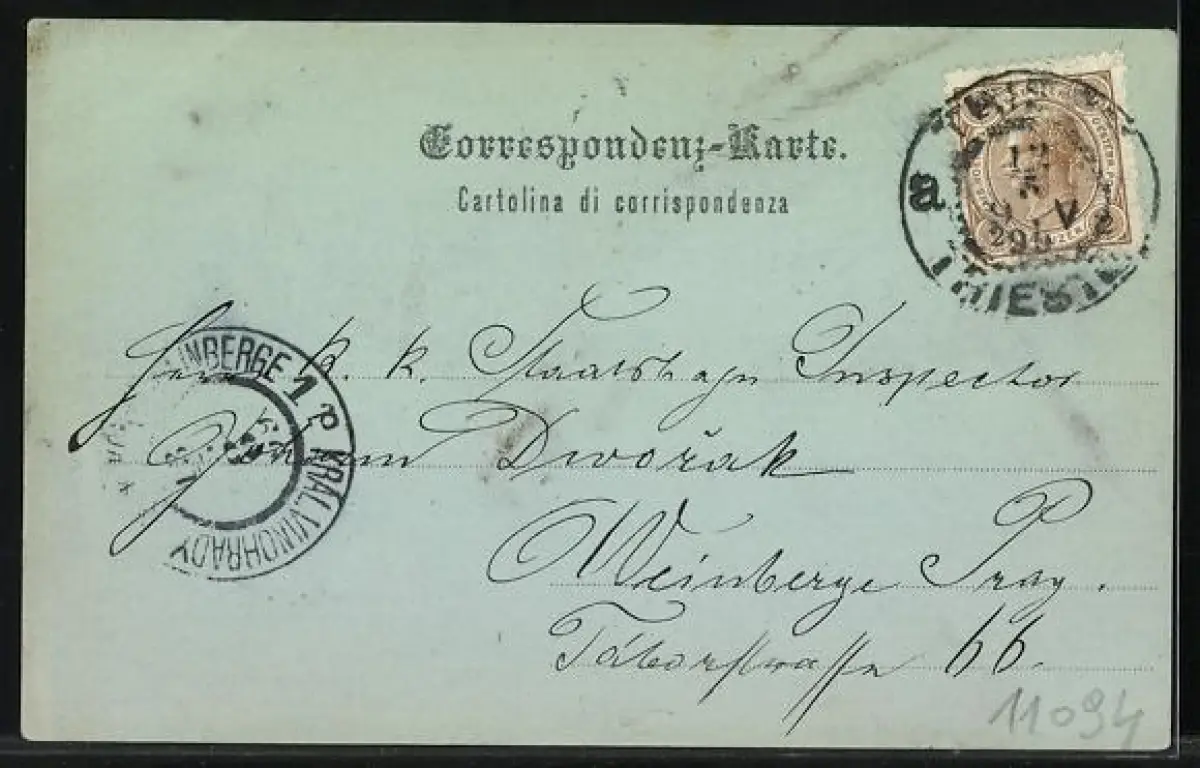 Correspondenz-Karte.
Cartolina di corrispondenza
a
12
V
TRIEST
INBERGE 1
KRÁL. VINOHRADY
Herrn k. k. Staatsbahn Inspector
Johann Dwořak
Weinberge Prag.
Taborstrasse 66.
11094